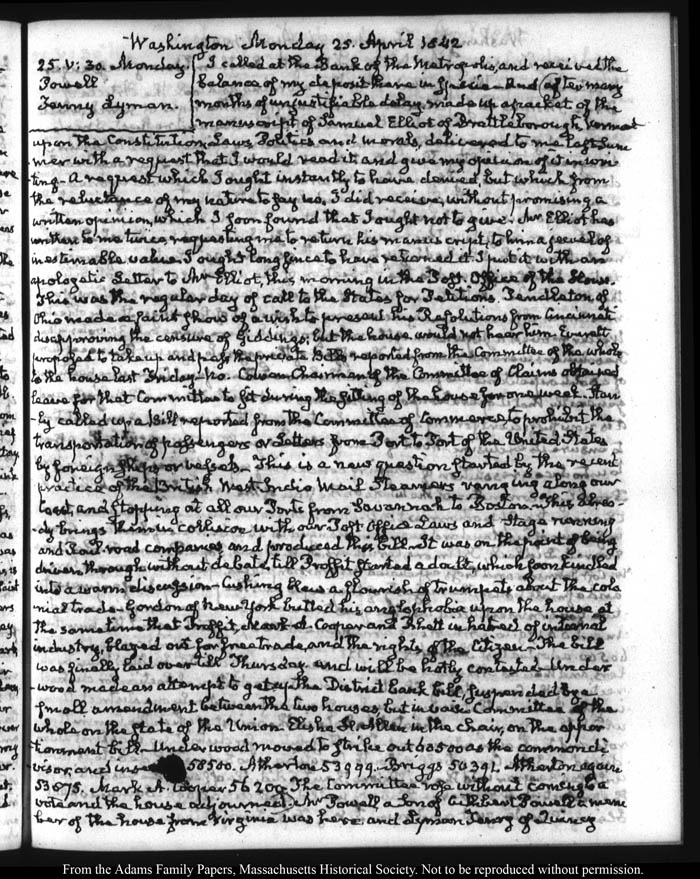 Washington Monday 25. April 1842
25. V: 30. Monday I called at the Bank of the Metropolis, and received the
Powell balance of my deposit there in specie. And after many
Tenny Lyman. months of unjustifiable delay, made up a packet of the
manuscript of Samuel Elliot of Brattleborough Vermont
upon the Constitution, Laws, Politics and morals, delivered to me last Sum
mer with a request that I would read it, and give my opinion of it in wri
ting. A request which I ought instantly to have denied, but which from
the reluctance of my nature to say no, I did receive, without promising a
written opinion, which I soon found that I ought not to give. Mr Elliot has
written to me twice, requesting me to return his manuscript, to him a jewel of
inestimable value. I ought long since to have returned it. I put it with an
apologetic Letter to Mr Elliot, this morning in the Post Office of the House.
This was the regular day of call to the States for Petitions. Pendleton of
Ohio made a faint show of a wish to present his Resolutions from Cincinnati
disapproving the censure of Giddings; but the house would not hear him. Everett
proposed to take up and pass the private Bills reported from the Committee of the whole
to the house last Friday—no. Cowen Chairman of the Committee of Claims obtained
leave for that Committee to sit during the sitting of the house for one week. Stan
ly called up a Bill reported from the Committee of Commerce to prohibit the
transportation of passengers or Letters from Port to Port of the United States
by foreign ships or vessels. This is a new question started by the recent
practice of the British West India Mail Steamers ranging along our
Coast, and stopping at all our Ports from Savannah to Boston. This alrea-
dy brings them in collision with our Post Office Laws and Stage running
and Rail-road companies and produced this bill. It was on the point of being
driven through without debate, till Proffit started a doubt, which soon kindled
into a warm discussion. Cushing blew a flourish of trumpets about the colo
nial trade. Gordon of New York butted his anglophobia upon the house at
the same time that Proffit, Mark A. Cooper and Rhett in hatred of internal
industry, blazed out for free trade, and the rights of the Citizen. The bill
was finally laid over till Thursday and will be hotly contested. Under
wood made an attempt to get up the District bank bill, suspended by a
small amendment between the two houses, but in vain. Committee of the
whole on the state of the Union. Elisha H. Allen in the chair, on the appor
tionment bill. Underwood moved to strike out 60500 as the common di
visor, and ins 58500. Atherton 53999. Briggs 50391. Atherton again
53675. Mark A. Cooper 56200. The Committee rose without coming to a
vote and the house adjourned. Mr Powell, a son of Cuthbert Powell a mem
ber of the house from Virginia was here, and Lyman Tenny of Quincy
From the Adams Family Papers, Massachusetts Historical Society. Not to be reproduced without permission.